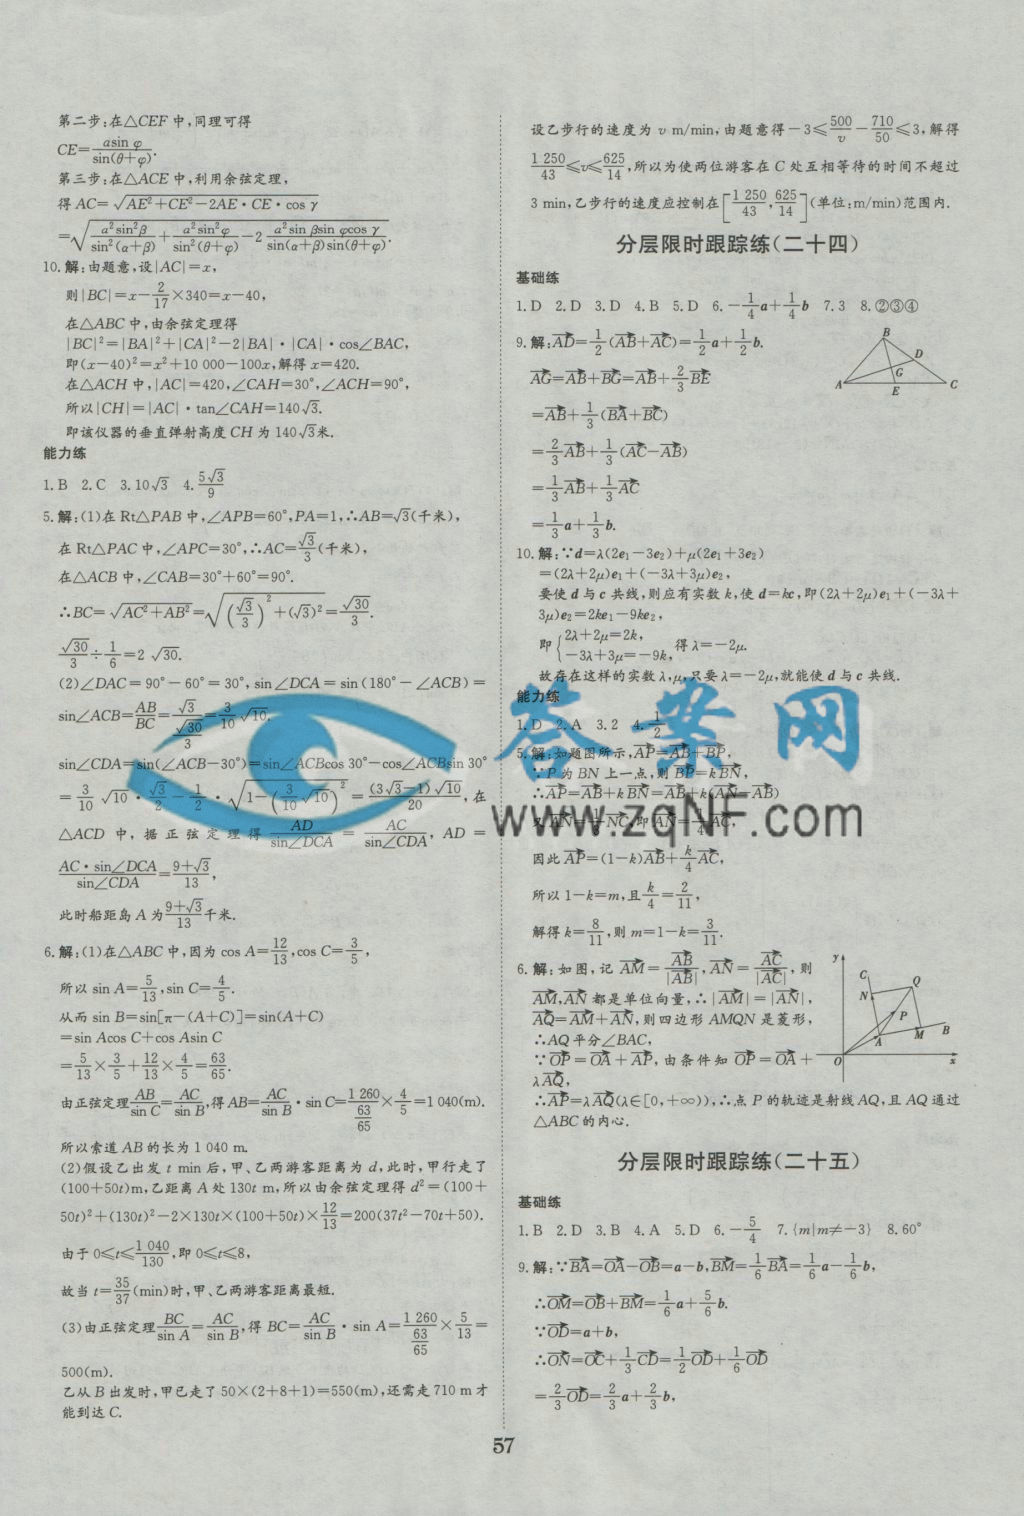 第二步:在△CEF中,同理可得
CE=asin φ/sin(θ+φ).
第三步:在△ACE中,利用余弦定理,
得AC=√(AE²+CE²-2AE·CE·cos γ)
=√(a²sin²β/sin²(α+β)+a²sin²φ/sin²(θ+φ)-2 a²sin βsin φcos γ/sin(α+β)sin(θ+φ)).
10.解:由题意,设|AC|=x,
则|BC|=x-2/17×340=x-40,
在△ABC中,由余弦定理得
|BC|²=|BA|²+|CA|²-2|BA|·|CA|·cos∠BAC,
即(x-40)²=x²+10 000-100x,解得x=420.
在△ACH中,|AC|=420,∠CAH=30°,∠ACH=90°,
所以|CH|=|AC|·tan∠CAH=140√3.
即该仪器的垂直弹射高度CH为140√3米.
能力练
1.B 2.C 3.10√3 4.5√3/9
5.解:(1)在Rt△PAB中,∠APB=60°,PA=1,∴AB=√3(千米),
在Rt△PAC中,∠APC=30°,∴AC=√3/3(千米),
在△ACB中,∠CAB=30°+60°=90°.
∴BC=√(AC²+AB²)=√((√3/3)²+(√3)²)=√30/3.
√30/3÷1/6=2√30.
(2)∠DAC=90°-60°=30°,sin∠DCA=sin(180°-∠ACB)=
sin∠ACB=AB/BC=√3/(√30/3)=3/10√10.
sin∠CDA=sin(∠ACB-30°)=sin∠ACBcos 30°-cos∠ACBsin 30°
=3/10√10·√3/2-1/2·√(1-(3/10√10)²)=(3√3-1)√10/20,在
△ACD中,据正弦定理得AD/sin∠DCA=AC/sin∠CDA,AD=
AC·sin∠DCA/sin∠CDA=9+√3/13,
此时船距岛A为9+√3/13千米.
6.解:(1)在△ABC中,因为cos A=12/13,cos C=3/5,
所以sin A=5/13,sin C=4/5.
从而sin B=sin[π-(A+C)]=sin(A+C)
=sin Acos C+cos Asin C
=5/13×3/5+12/13×4/5=63/65.
由正弦定理AB/sin C=AC/sin B,得AB=AC/sin B·sin C=1 260/(63/65)×4/5=1 040(m).
所以索道AB的长为1 040 m.
(2)假设乙出发t min后,甲、乙两游客距离为d,此时,甲行走了
(100+50t)m,乙距离A处130t m,所以由余弦定理得d²=(100+
50t)²+(130t)²-2×130t×(100+50t)×12/13=200(37t²-70t+50).
由于0≤t≤1 040/130,即0≤t≤8,
故当t=35/37(min)时,甲、乙两游客距离最短.
(3)由正弦定理BC/sin A=AC/sin B,得BC=AC/sin B·sin A=1 260/(63/65)×5/13=
500(m).
乙从B出发时,甲已走了50×(2+8+1)=550(m),还需走710 m才
能到达C.
设乙步行的速度为v m/min,由题意得-3≤500/v-710/50≤3,解得
1 250/43≤v≤625/14,所以为使两位游客在C处互相等待的时间不超过
3 min,乙步行的速度应控制在[1 250/43,625/14](单位:m/min)范围内.
分层限时跟踪练(二十四)
基础练
1.D 2.D 3.D 4.B 5.D 6.-1/4a+1/4b 7.3 8.②③④
9.解:AD=1/2(AB+AC)=1/2a+1/2b.
AG=AB+BG=AB+2/3BE
=AB+1/3(BA+BC)
=2/3AB+1/3(AC-AB)
=1/3AB+1/3AC
=1/3a+1/3b.
B
D
G
A
E
C
10.解:∵d=λ(2e₁-3e₂)+μ(2e₁+3e₂)
=(2λ+2μ)e₁+(-3λ+3μ)e₂,
要使d与c共线,则应有实数k,使d=kc,即(2λ+2μ)e₁+(-3λ+
3μ)e₂=2ke₁-9ke₂,
即{2λ+2μ=2k, -3λ+3μ=-9k, 得λ=-2μ.
故存在这样的实数λ,μ,只要λ=-2μ,就能使d与c共线.
能力练
1.D 2.A 3.2 4.1/2
5.解:如题图所示,AP=AB+BP,
∵P为BN上一点,则BP=kBN,
∴AP=AB+kBN=AB+k(AN-AB)
又AN=1/3NC,即AN=1/4AC,
因此AP=(1-k)AB+k/4AC,
所以1-k=m,且k/4=2/11,
解得k=8/11,则m=1-k=3/11.
6.解:如图,记AM=AB/|AB|,AN=AC/|AC|,则
AM,AN都是单位向量,∴|AM|=|AN|,
AQ=AM+AN,则四边形AMQN是菱形,
∴AQ平分∠BAC,
∵OP=OA+AP,由条件知OP=OA+
λAQ,
∴AP=λAQ(λ∈[0,+∞)),∴点P的轨迹是射线AQ,且AQ通过
△ABC的内心.
y
C
Q
N
P
A
M
B
O
x
分层限时跟踪练(二十五)
基础练
1.B 2.D 3.B 4.A 5.D 6.-5/4 7.{m|m≠-3} 8.60°
9.解:∵BA=OA-OB=a-b,BM=1/6BA=1/6a-1/6b,
∴OM=OB+BM=1/6a+5/6b.
∵OD=a+b,
∴ON=OC+1/3CD=1/2OD+1/6OD
=2/3OD=2/3a+2/3b,
57
答案网
www.zqNF.com